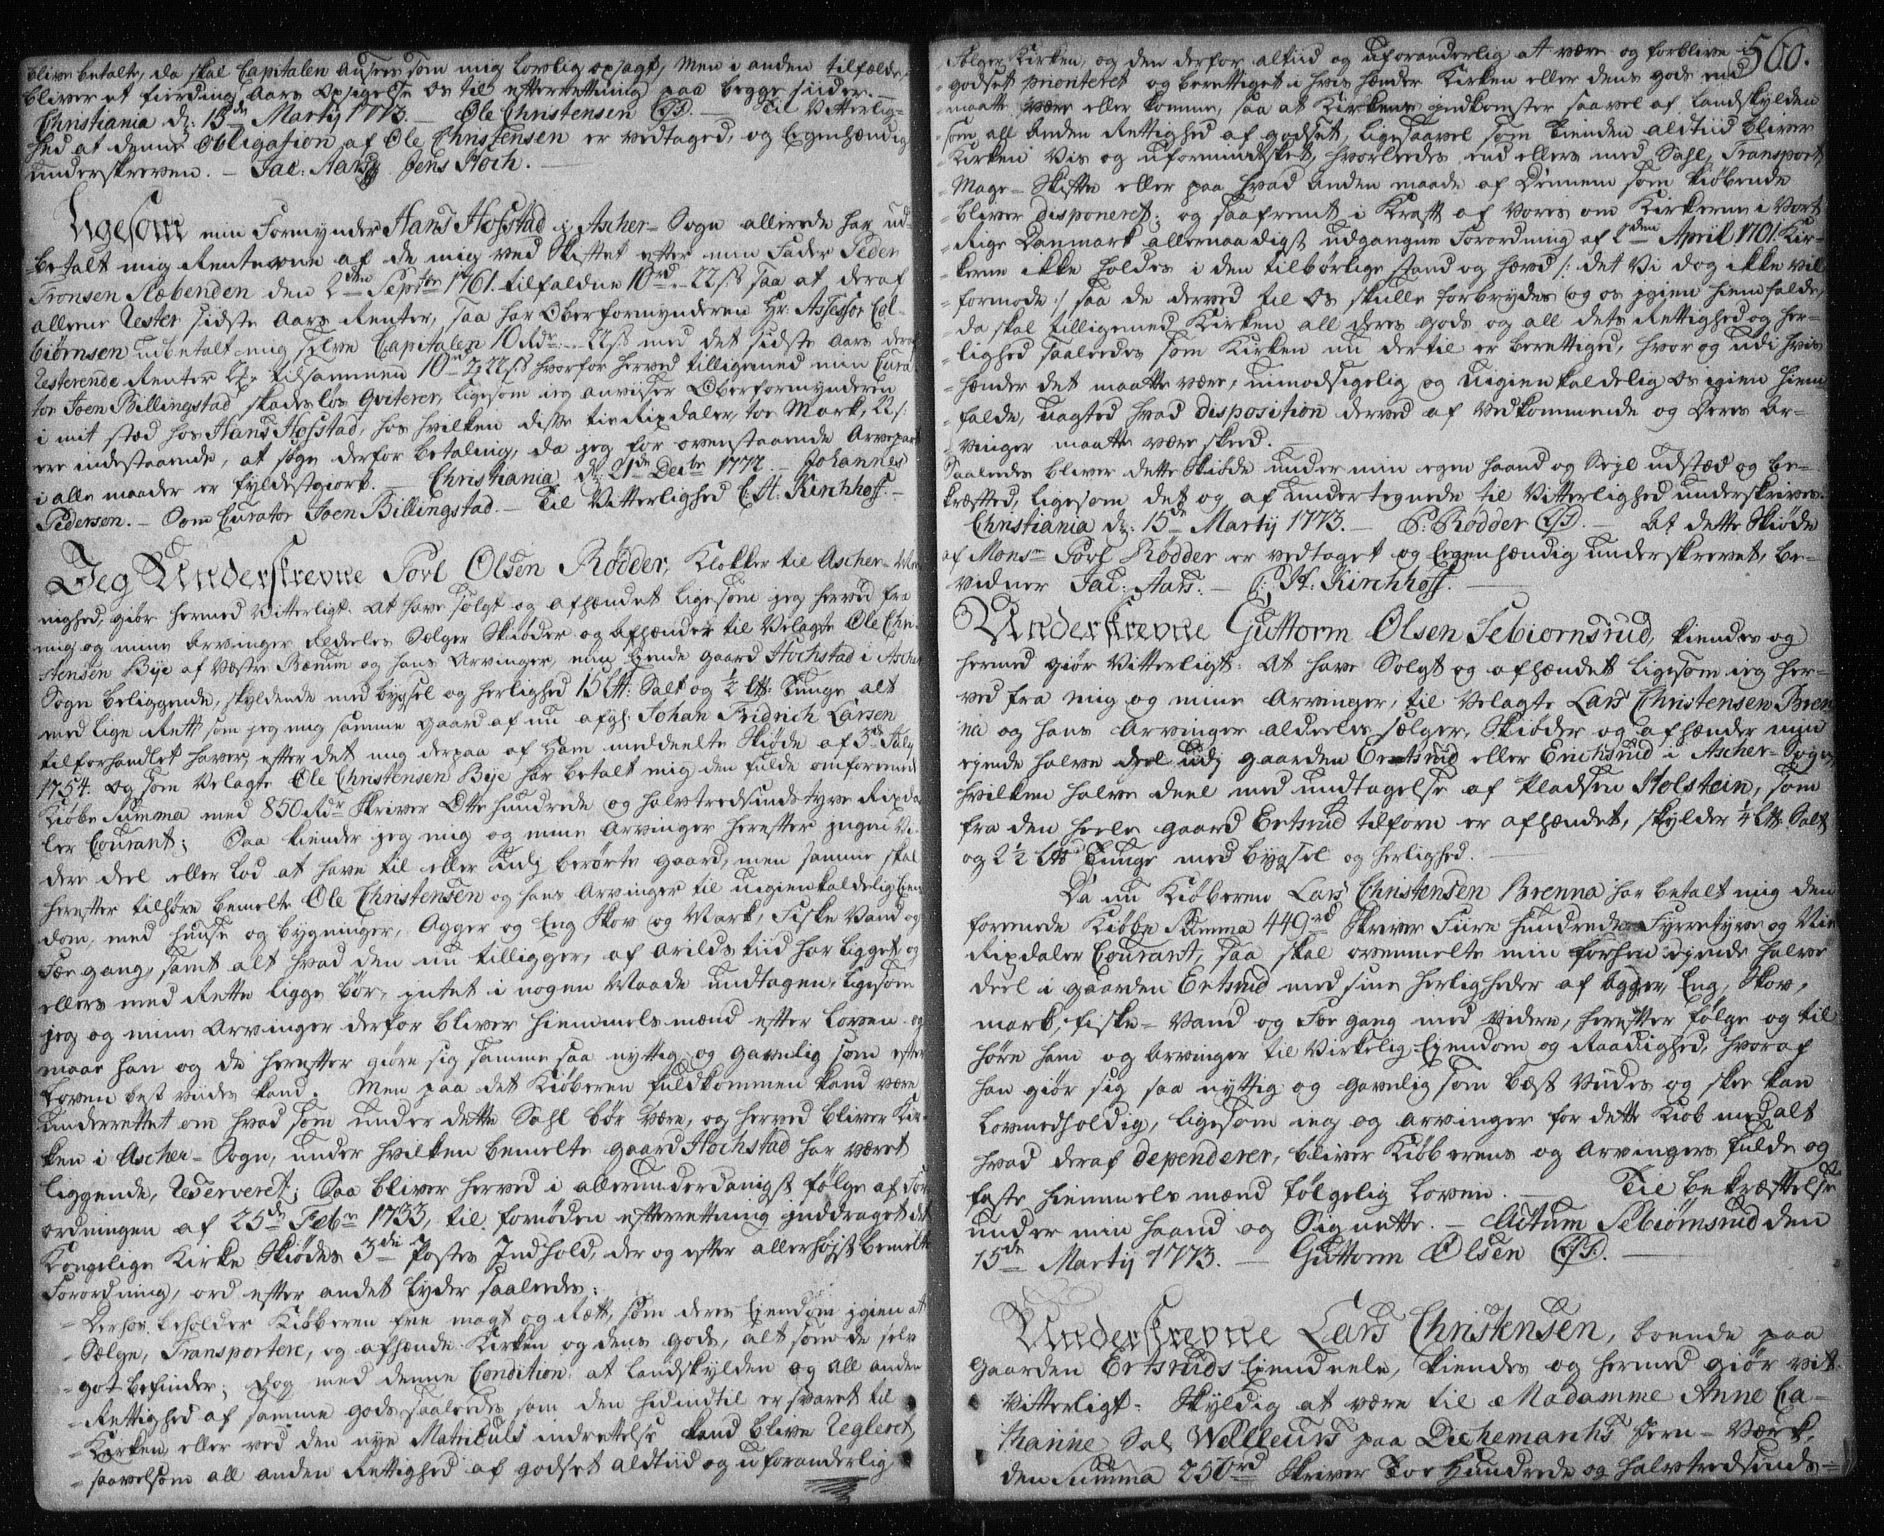 blive betalte, da skal Capitalen ansees som mig lovlig opsagt, Men i anden tilfælde,
bliver et fierding Aars Opsigelse os til efterretning paa begge siider. —
Christiania d: 13de Martij 1773. — Ole Christensen (LS). — Til Vitterlig-
hed at denne Obligation af Ole Christensen er vedtaged, og Egenhændig
underskreven. — Jac: Aars. Jens Hoch. —
Ligesom min Formynder Hans Hofstad i Ascher Sogn allerede har ud-
betalt mig Renterne af de mig ved Skiftet efter min Fader Peder
Tronsen Slæbenden den 2den Septbr 1761. tilfaldne 10rd 22 s. saa at deraf
alleene Rester sidste Aars Renter, saa har Oberformynderen Hr. Assessor Col-
biørnsen udbetalt mig selve Capitalen 10 Rdr. 22 s. med det sidste Aars deraf
Resterende Renter tilsammen 10 2 22 s. hvorfor herved tilligemed min Cura-
tor Joen Billingstad skadesløs Qviterer, ligesom ieg anviser Oberformynderen
i mit stæd hos Hans Hofstad, hos hvilken disse tie Rixdaler, toe Mark, 22 s.
ere indestaaende, at søge derfor betaling, da jeg for ovenstaaende Arvepart
i alle maader er fyldestgiort. — Christiania d: 21de Decbr 1772. — Johannes
Pedersen. — Som Curator Joen Billingstad. — Til Vitterlighed C: H. Kirchhoff. —
Jeg Underskrevne Povl Olsen Rødder, Klokker til Ascher Me-
nighed, giør hermed Vitterligt: At have solgt og afhændet ligesom jeg herved fra
mig og mine arvinger aldeeles Sælger Skiøder og Afhænder til Velagte Ole Chri-
stensen Bye af Vestre Bærum og hans Arvinger, min Ejende gaard Hochstad i Ascher
Sogn beliggende, skyldende med bygsel og herlighed 15 Lit: Salt og ½ Lit: Tunge alt
med lige Rett som jeg mig samme gaard af nu afg. Johan Fridrich Larsen
tilforhandlet haver, efter det mig derpaa af ham meddeelte Skiøde af 3de July
1754. Og som Velagte Ole Christensen Bye har betalt mig den fulde omforeened
Kiøbe Summa med 850 Rdr skriver Otte hundrede og halvtredsindstyve Rixda-
ler Courant; Saa kiender jeg mig og mine Arvinger herefter ingen Vi-
dere deel eller Lod at have til eller udj berørte gaard, men samme skal
herefter tilhøre bemelte Ole Christensen og hans Arvinger til uigienkaldelig Ejen-
dom, med huuse og bygninger, Agger og Eng Skov og Mark, Fiske Vand og
Foe gang, samt alt hvad den nu tilligger, af Arilds tiid har ligget og
ellers med Rette ligge bør, intet i nogen Maade undtagen, ligesom
jeg og mine Arvinger derfor bliver hiemmels mænd efter Loven og
maae han og de herefter giøre sig samme saa nyttig og gavnlig som efter
Loven best viides kand. Men paa det Kiøberen fuldkommen kand være
underrettet om hvad som under dette Sahl bør være, og herved bliver Kir-
ken i Ascher Sogn, under hvilken bemelte gaard Hochstad har været
liggende, Reserveret; Saa bliver herved i allerunderdanigst følge af For-
ordningen af 25de Febr 1733, til fornøden efterretning inddraget det
Kongelige Kirke Skiødes 3die Postes Indhold, der og efter allerhøjst bemelte
Forordning, ord efter andet lyder saaledes:
Derhos beholder Kiøberen frie magt og Rett, som deres Ejendom igien at
Sælge, Transportere, og afhænde Kirken og dens gods, alt som de selv
got befinder; dog med denne Condition at Landskylden og all anden
Rettighed af samme gods saaledes som den hidindtil er svaret til
Kirken eller ved den nye Matriculs indrettelse kand blive Regleret
saavelsom all anden Rettighed af godset altiid og uforanderlig
560.
følger Kirken, og den derfor altiid og uforanderlig at være og forblive i
godset prioriteret og berettiget i hvis hænder Kirken eller dens gods end
maatte være eller komme, saa at Kirkens indkomster saavel af Landskylden
som all anden Rettighed af godset, ligesaavel som Tienden altiid bliver
Kirken Vis og uformindsket, hvorledes end ellers med Sahl, Transport,
Mage-Skifte eller paa hvad anden maade af Dennem som kiøbende
bliver disponeret; og saafremt i Kraft af Vores om Kirkerne i Vort
Rige Danmark allernaadigst udgangne Forordning af 2den April 1701. Kir-
kerne ikke holdes i den tilbørlige stand og hævd /: det Vi dog ikke vil
formode :/ saa de derved til Os skulle forbrydes og os igien hiemfalde,
da skal tilligemed Kirken all deres gods og all dets Rettighed og her-
lighed saaledes som Kirken nu dertil er berettiged, hvor og udi hvis
hænder det maatte være, uimodsigelig og uigienkaldelig Os igien hiem
falde, uagted hvad disposition derved af Vedkommende og Deres Ar-
vinger maatte være skeed.
Saaledes bliver dette Skiøde under min egen haand og Seyl udstæd og be-
kræfted, ligesom det og af undertegnede til Vitterlighed underskrives.
Christiania d: 15de Martij 1773. — P: Rødder (LS). — At dette Skiøde
af Monsr Povl Rødder er vedtaget og Egenhændig underskrevet, be-
vidner Jac: Aars. — C: H: Kirchhoff. —
Underskrevne Guttorm Olsen Sebiørnsrud, kiendes og
hermed giør Vitterligt: At have Solgt og afhændet ligesom ieg her-
ved fra mig og mine Arvinger, til Velagte Lars Christensen Bren
na og hans Arvinger aldeeles sælger, Skiøder og afhænder min
ejende halve deel udj gaarden Ertsrud eller Erichsrud i Ascher-Sogn,
hvilken halve deel med undtagelse af Pladsen Holstein, som
fra den heele gaard Ertsrud tilforn er afhændet, skylder ¼ Lit: Salt
og 2½ Lit Tunge med bygsel og herlighed. —
Da nu Kiøberen Lars Christensen Brenna har betalt mig den
foreenede Kiøbe Summa 449rd skriver Fiire Hundrede Fyrretyve og Nie
Rixdaler Courant, saa skal ovenmelte min forhen ejende halve
deel i gaarden Ertsrud med sine herligheder af Agger, Eng, Skov,
mark, fiske-Vand og Foe gang med videre, herefter følge og til
høre ham og Arvinger til Virkelig Ejendom og Raadighed, hvoraf
han giør sig saa nyttig og gavnlig som best Viides og skee kan
Lovmedholdig, ligesom ieg og Arvinger for dette Kiøb med alt
hvad deraf dependerer, bliver Kiøberens og Arvingers fulde og
faste hiemmels mænd følgelig Loven. — Til bekræftelse
under min haand og Signette. — Actum Sebiørnsrud den
15de Martij 1773. — Guttorm Olsen (LS). —
Underskrevne Lars Christensen, boende paa
Gaarden Ertsruds Ejendeele, kiendes og hermed giør vit-
Vitterligt. Skyldig at være til Madamme Anne Ca-
tharine Sal. Willeurs paa Dichemarchs Jern-Værk,
den Summa 250rd skriver Toe Hundrede og halvtredsinds-